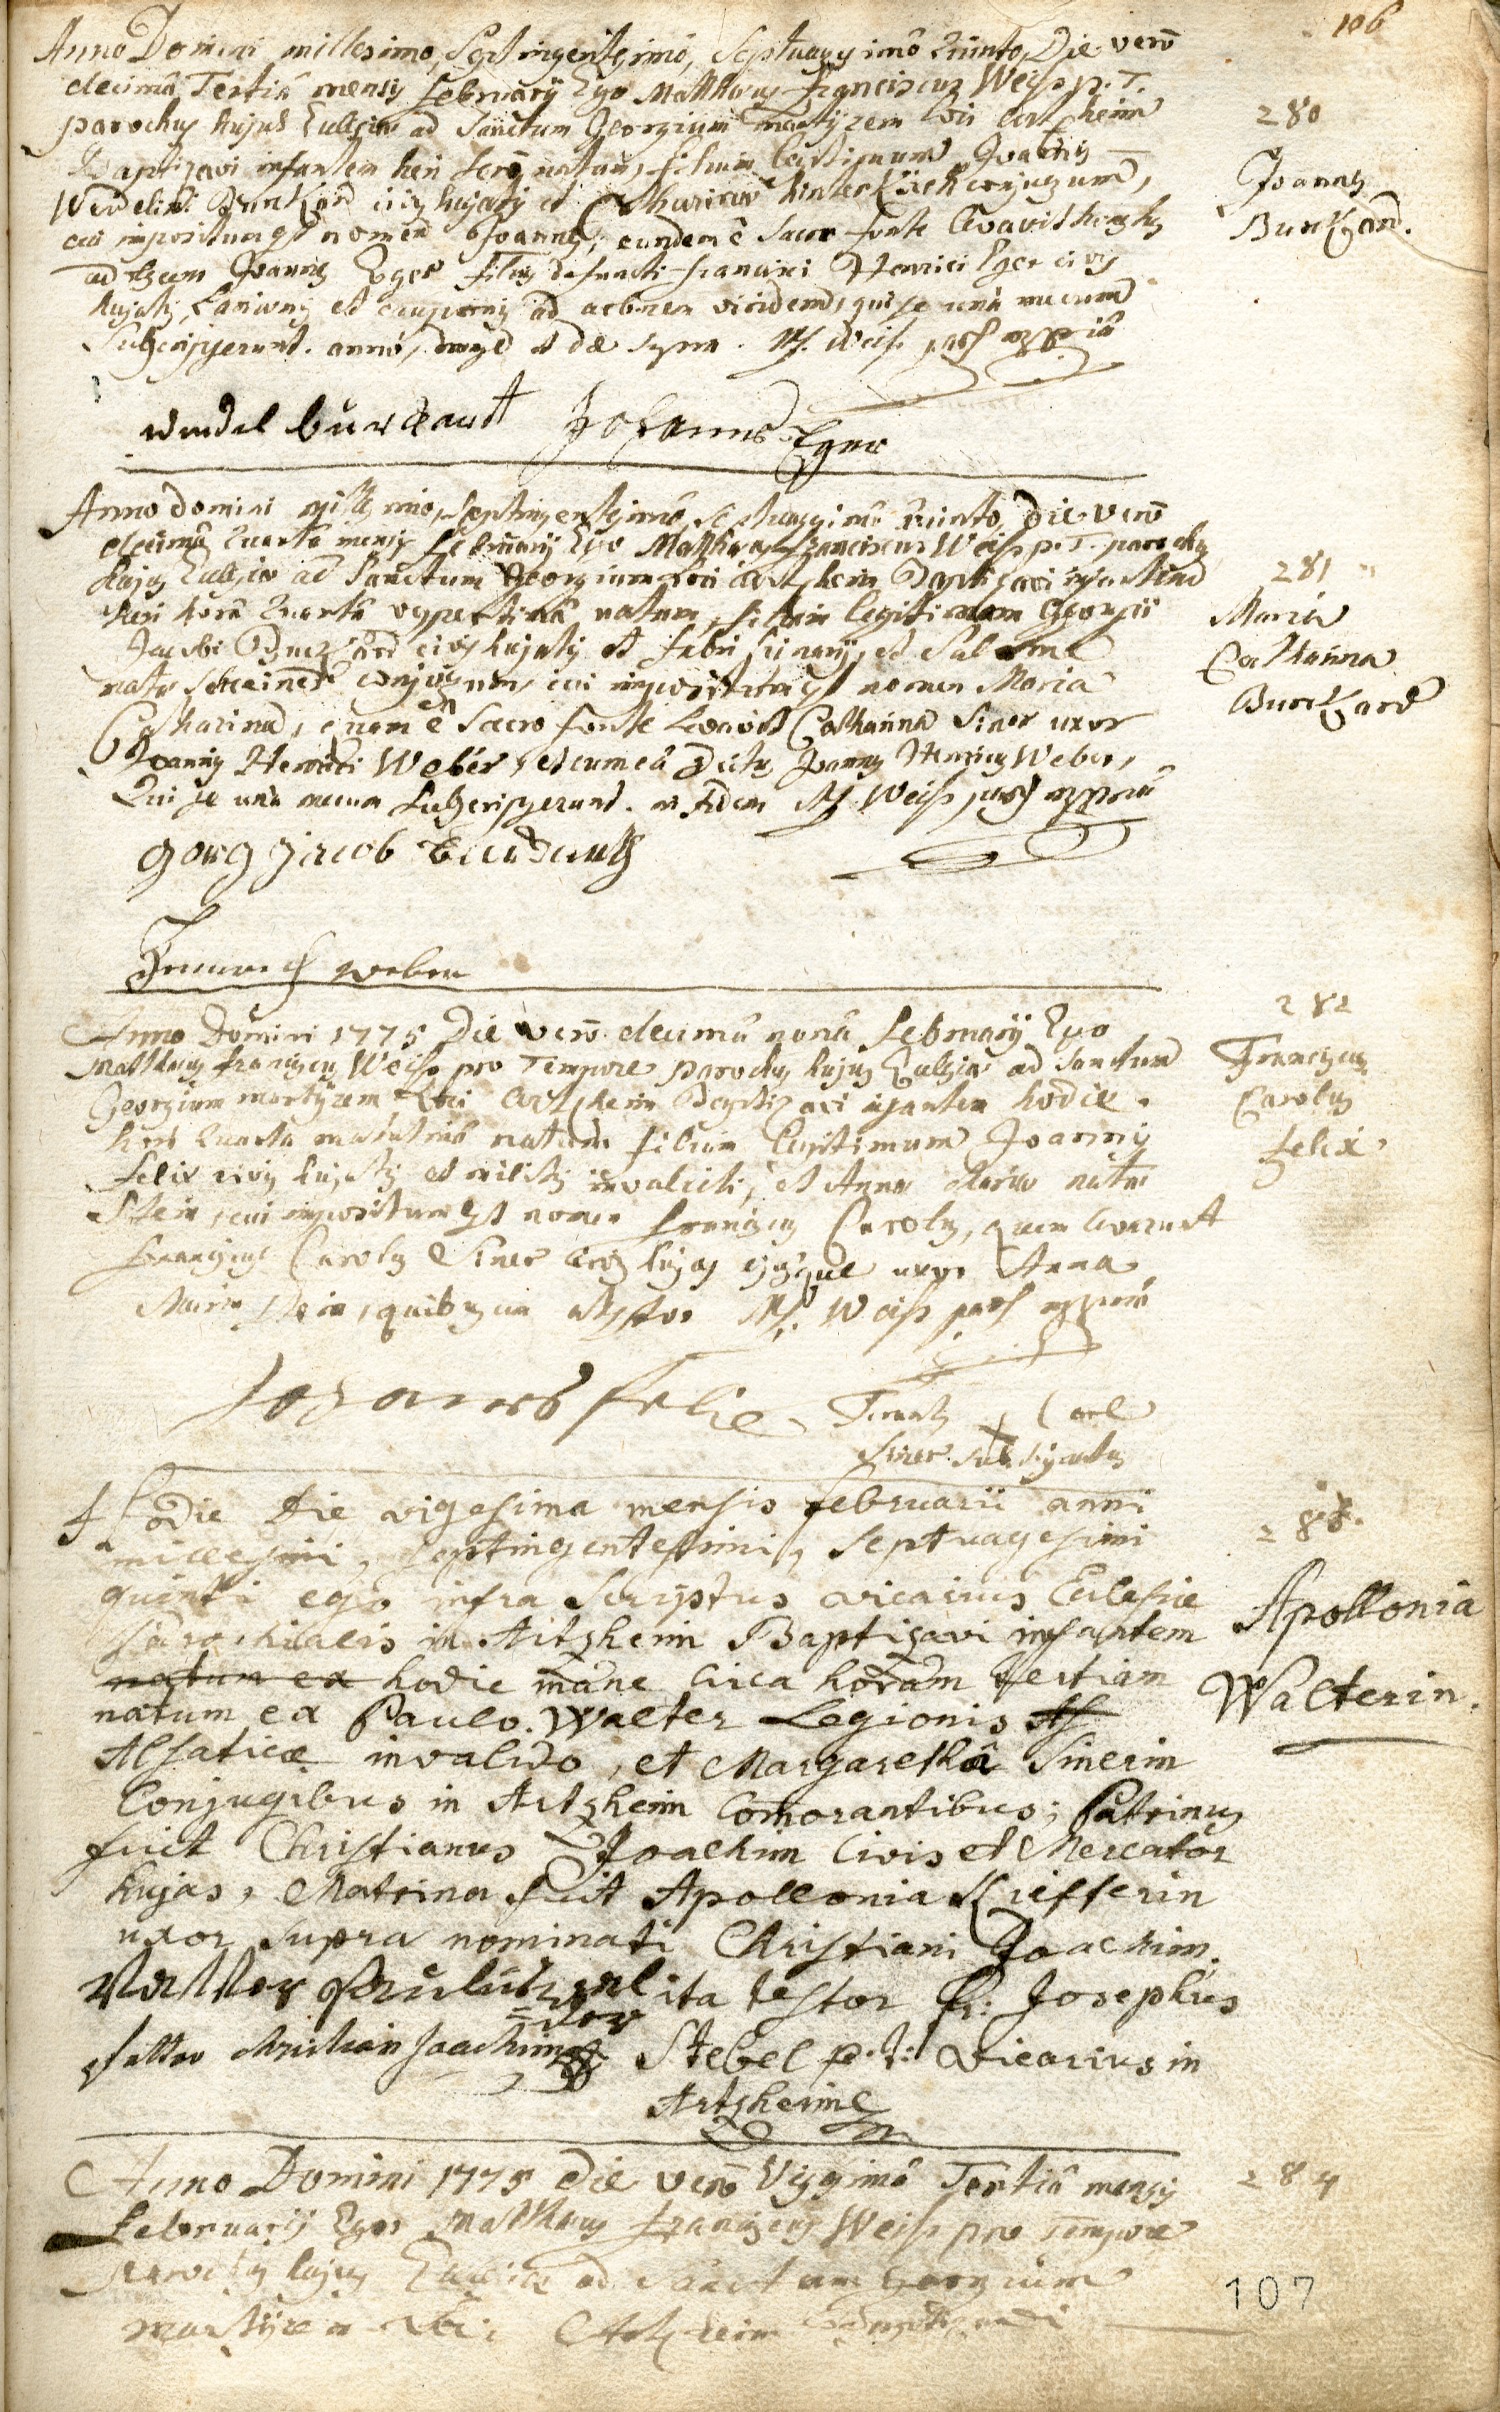 106
Anno Domini millesimo, Septingentesimo, Septuagesimô Quinto, Die verò
decimâ Tertiâ mensis Februarÿ Ego Matthæus Franciscus Weiss p. T.
parochus hujus Ecclesiæ ad Sanctum Georgium martÿrem loci Artzheim
Baptizavi infantem heri natum, filium legitimum Joannis
Wendelini Burckard civis hujatis et Catharinæ conjugum,
cui impositum est nomen Joannes; eundem è Sacro fonte levavit
Joannes Eger filius defuncti Francisci Henrici Eger civis
hujatis, et cauponis ad arborem viridem, qui se unâ mecum
Subscripserunt. anno, et die supra. M. Weiss
280
Joannes
Burckard.
wendel burckardt Johannes Eger
Anno domini millesimo, Septingentesimô, Septuagesimô Quinto, Die verò
decimâ Quartâ mensis Februarÿ Ego Matthæus Franciscus Weiss p. T. parochus
hujus Ecclesiæ ad Sanctum Georgium loci Artzheim Baptizavi infantem
heri horâ Quartâ vespertinâ natam, filiam legitimam Georgii
Jacobi Burckard civis hujatis et fabri et Salome
natæ conjugum, cui impositum est nomen Maria
Catharina, quam è Sacro fonte levavit Catharina Siner uxor
Joannis Henrici Weber, et cum eâ Joannes Henricus Weber,
Qui se unâ mecum Subscripserunt. M. Weiss
281
Maria
Catharina
Burckard
georg jacob
weber
Anno Domini 1775 Die verò decimâ nonâ Februarÿ Ego
Matthæus Franciscus Weiss pro Tempore parochus hujus Ecclesiæ ad Sanctum
Georgium martÿrem Loci Artzheim Baptizavi infantem hodie
horâ Quartâ matutinâ natum filium legitimum Joannis
Felix civis hujatis et militis invalidi, et Annæ Mariæ natæ
Stein, cui impositum est nomen Franciscus Carolus, quem levarunt
Franciscus Carolus Siner civis hujas ejusque uxor Anna
Maria Stein, M. Weiss
282
Franciscus
Carolus
Felix
Johannes Felix Frantz Carl
Siner
Hodie Die vigesima mensis februarii anni
millesimi, septingentesimi, septuagesimi
quinti ego infra Scriptus vicarius Eclesiæ
parochialis in Artzheim Baptizavi infantem
natum ex hodie mane circa horam tertiam
natum ex Paulo. Walter Legionis Als
Alsaticæ invalido, et Margarethâ Sinerin
Conjugibus in Artzheim Comorantibus; Patrinus
fuit Christianus Joachim Civis et Mercator
hujas, Matrina fuit Apollonia Kiefferin
uxor supra nominati Christiani Joachim.
Vatter Paulus wal
ter
ita testor Fr: Josephus
Christian Joachim Stebel p. t: vicarius in
Artzheim
283.
Apollonia
Walterin.
Anno Domini 1775 die verò Vigesimâ Tertiâ mensis
Februarÿ Ego Matthæus Franciscus Weiss pro Tempore
parochus hujus Ecclesiæ ad Sanctum Georgium
martÿrem Loci Artzheim Baptizavi
284
107